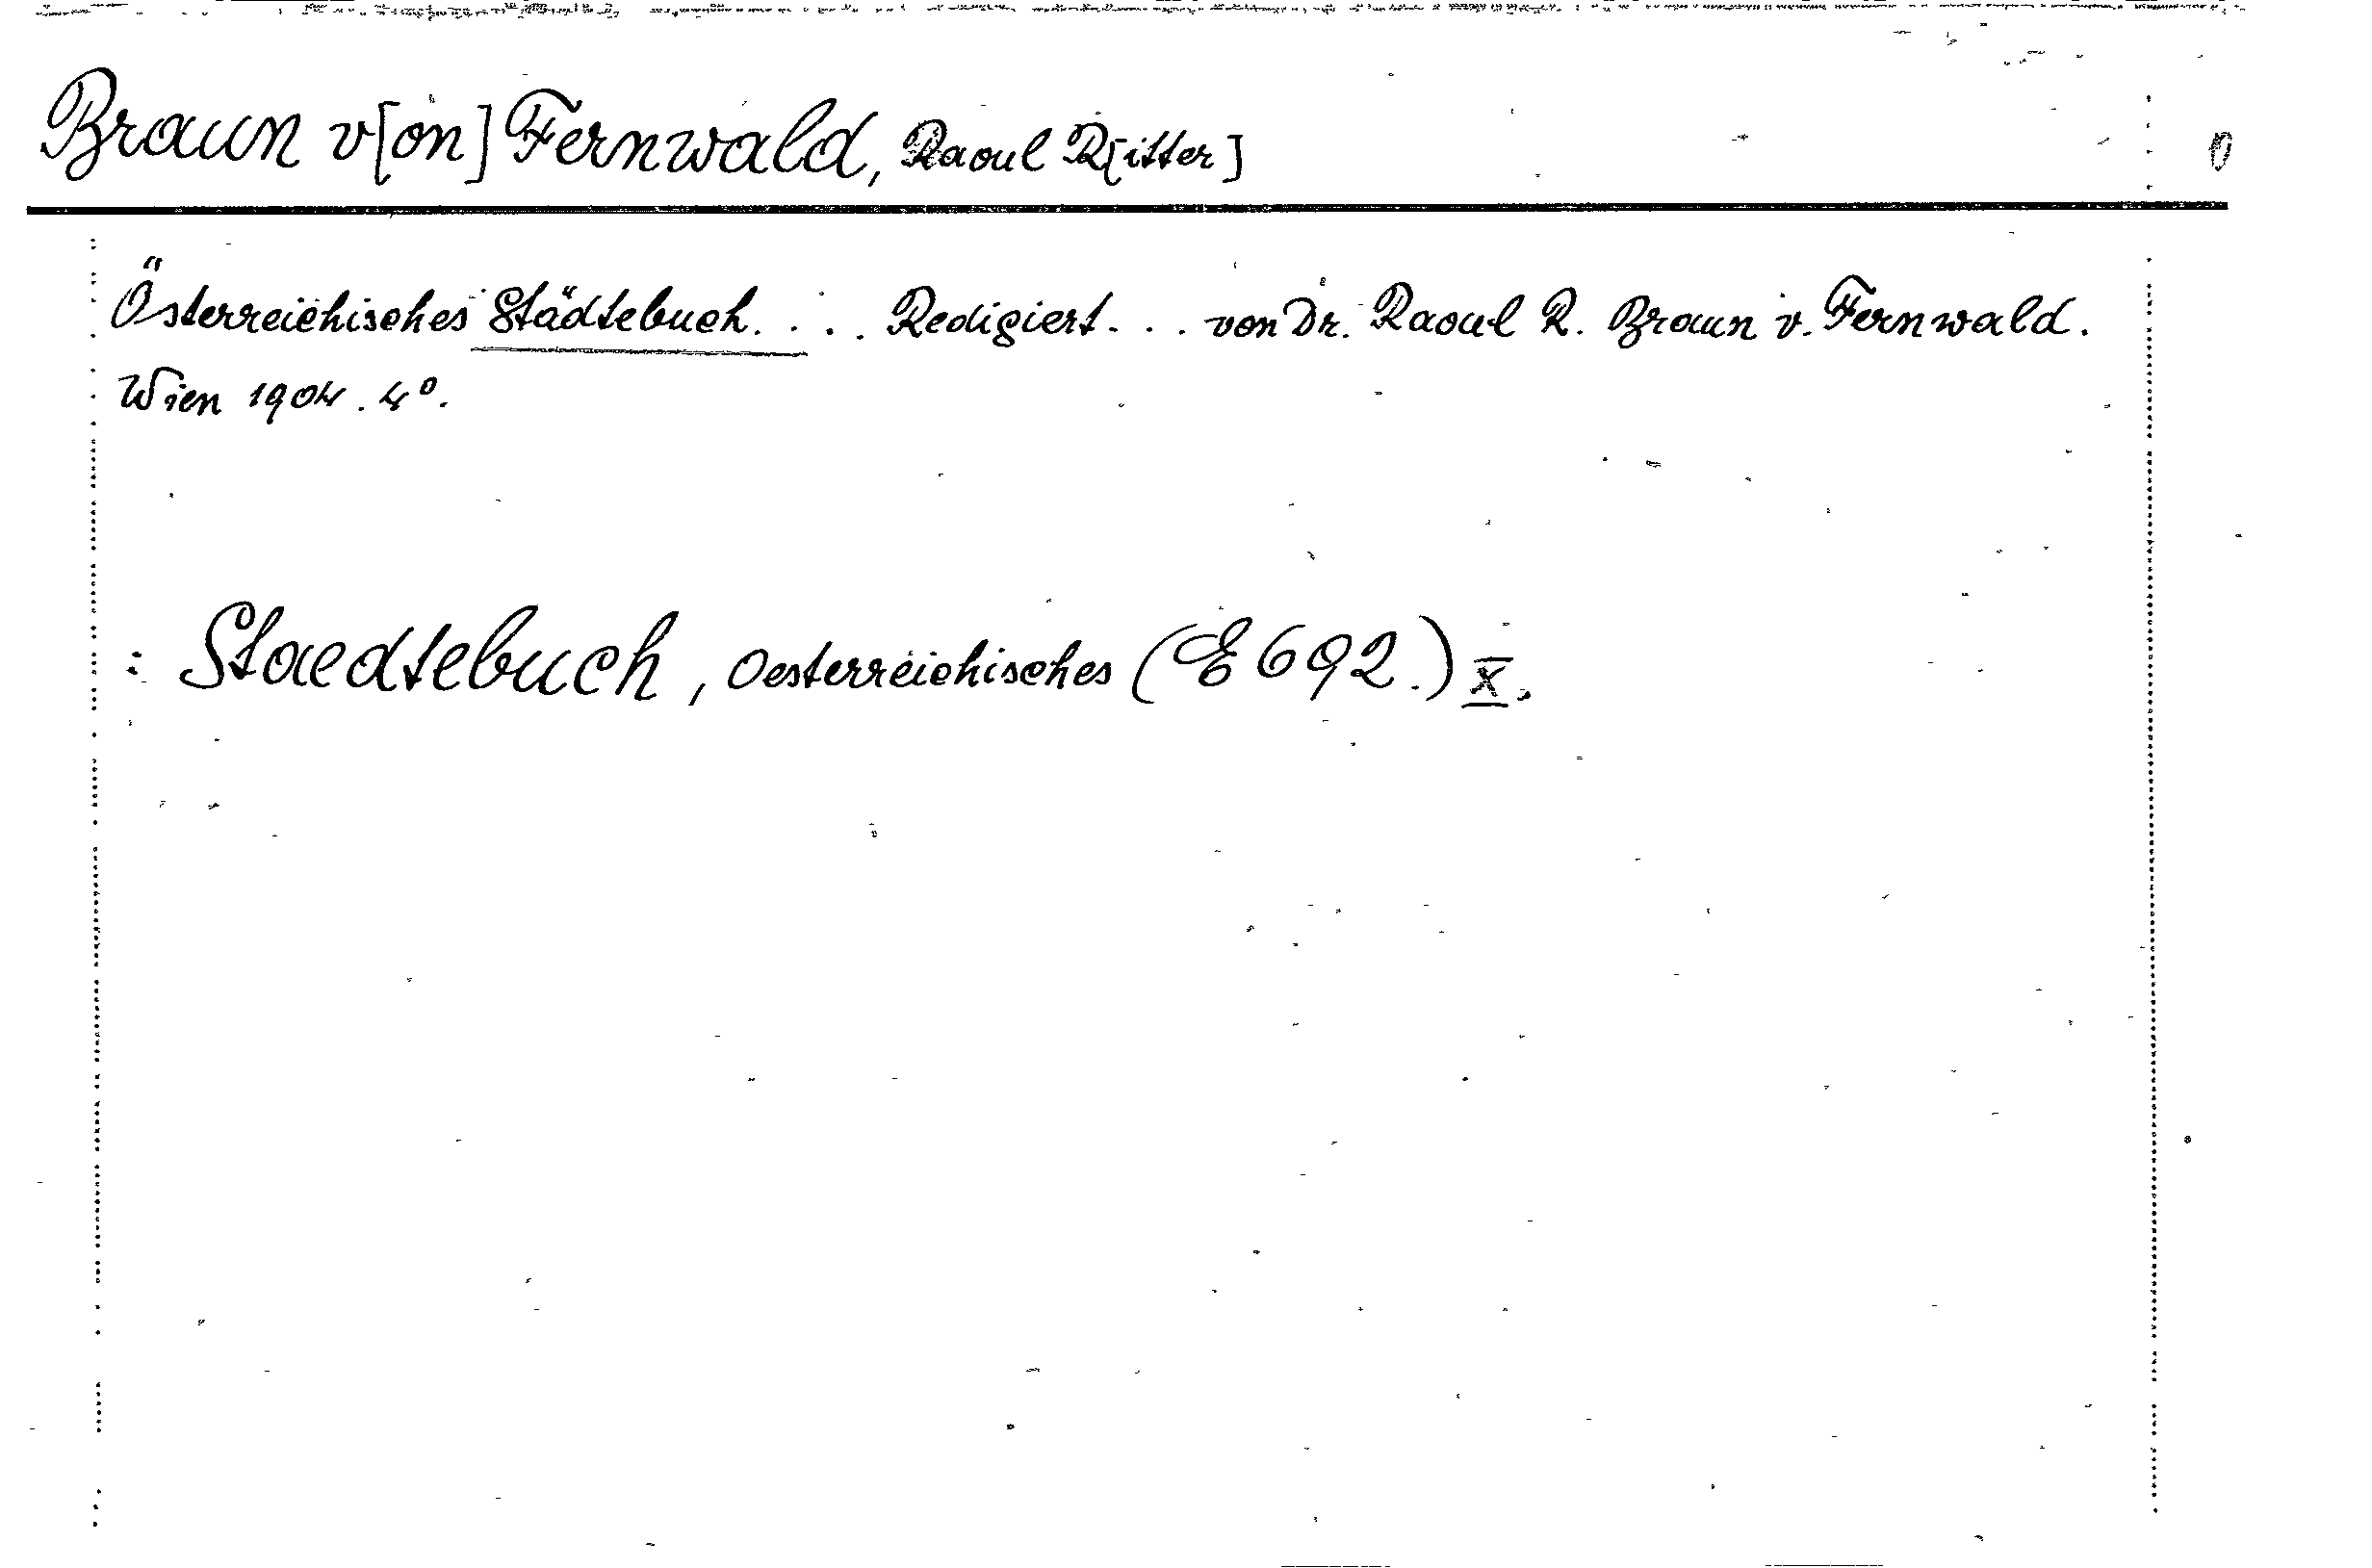 Braun v[on] Fernwald, Raoul R[itter] 0
Österreichisches Städtebuch. . . . Redigiert . . . von Dr. Raoul R. Braun v. Fernwald.
Wien 1904. 4⁰.
: Staedtebuch, Oesterreichisches (E 692.) X.